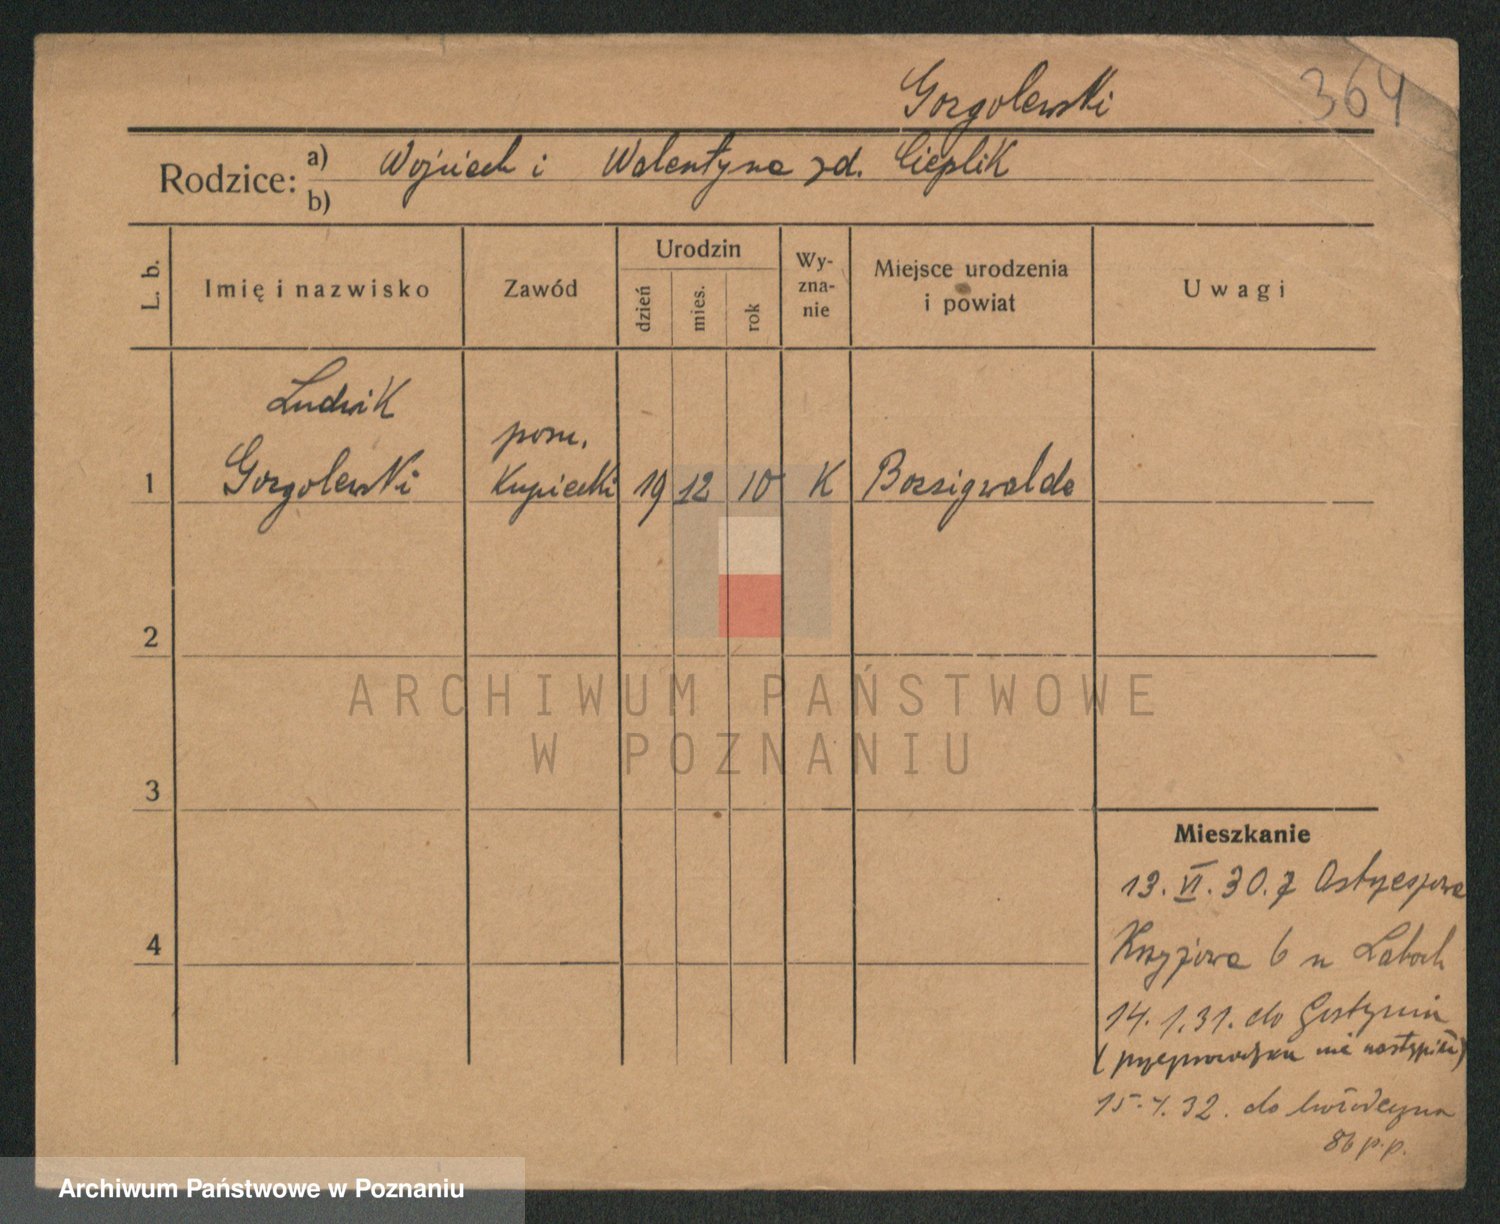 Gorgolewski
364
Rodzice: a) Wojciech i Walentyna zd. Cieplik
b)
L. b.
Imię i nazwisko
Zawód
Urodzin
dzień
mies.
rok
Wy-
zna-
nie
Miejsce urodzenia
i powiat
Uwagi
Ludwik
pom.
1 Gorgolewski Kupiecki 19 12 10 K Borsigwalde
2
ARCHIWUM PAŃSTWOWE
W POZNANIU
3
Mieszkanie
13. VI. 30. z
4
Krzyżowa 6 u
14. 1. 31. do Gostynia
nie nastąpiło)
32. do
8b p.p.
Archiwum Państwowe w Poznaniu